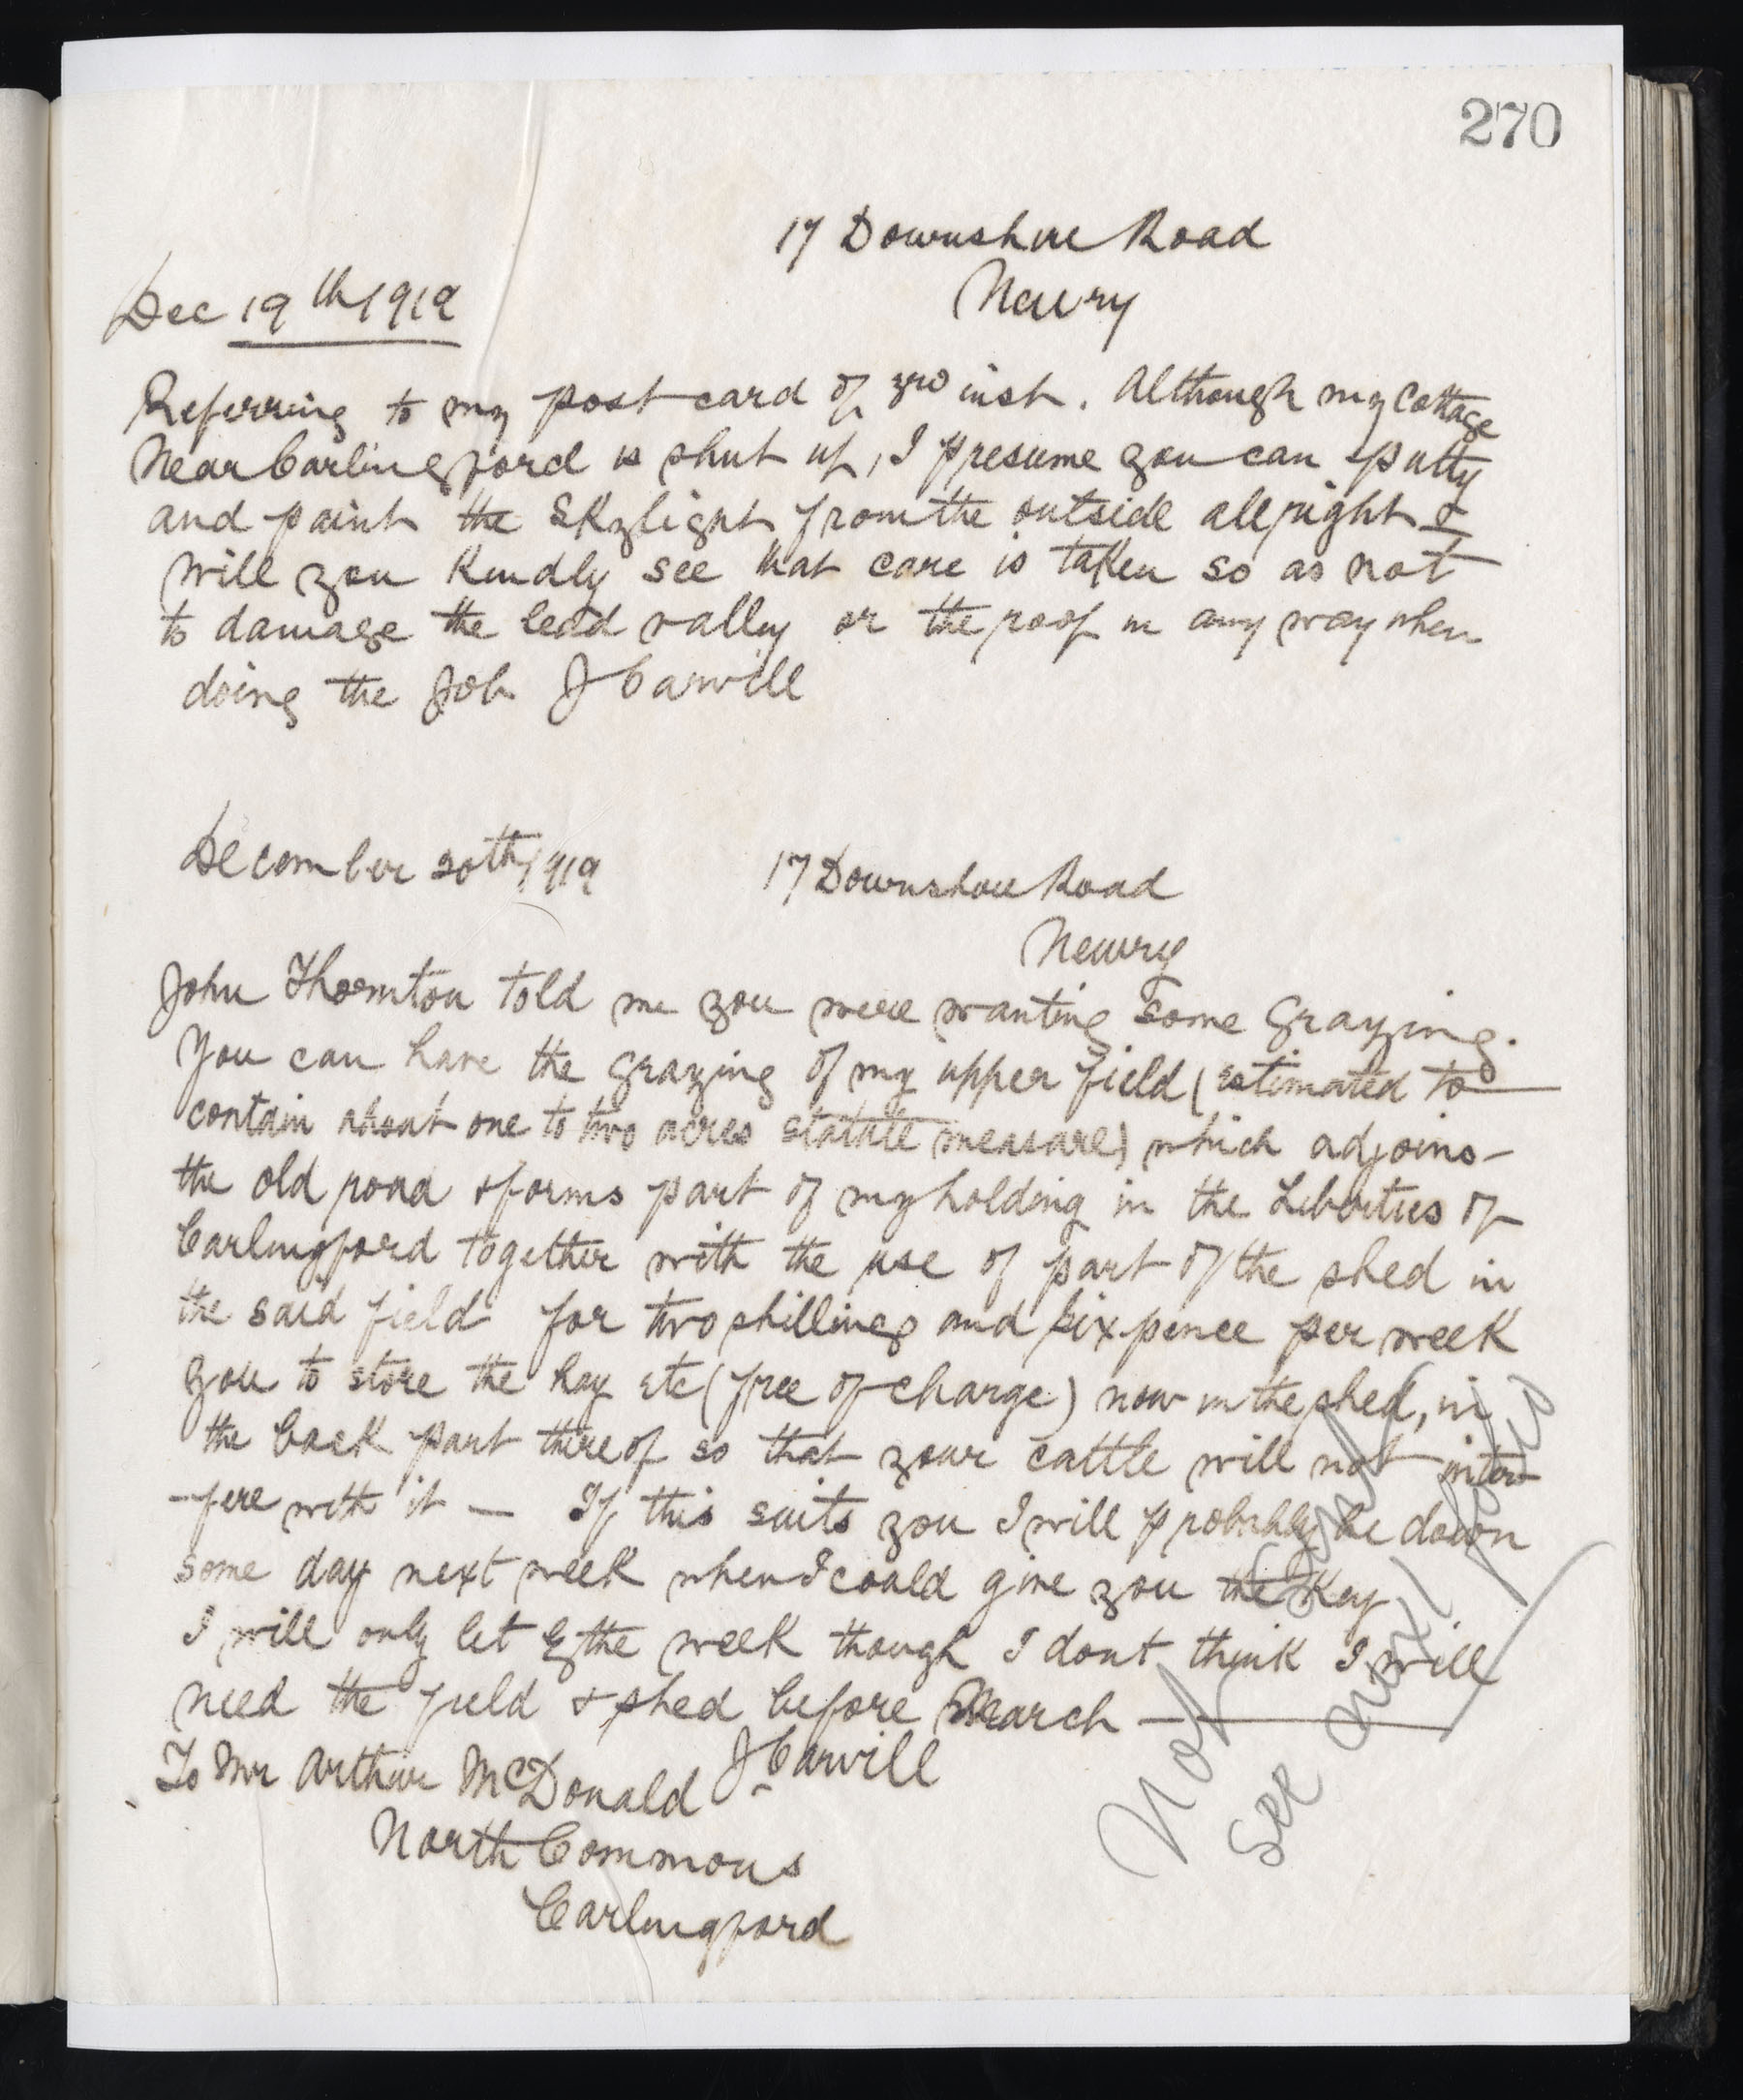 270
17 Downshire Road
Newry
Dec 19th 1919
Referring to my post card of 3rd inst. Although my Cottage
Near Carlingford is shut up, I presume you can putty
and paint the skylight from the outside all right &
will you kindly see that care is taken so as not
to damage the lead valley or the roof in any way when
doing the Job J Carvill
December 20th 1919
17 Downshire Road
Newry
John Thornton told me you were wanting some Grazing.
You can have the Grazing of my upper field (estimated to
contain about one to two acres statute measure) which adjoins
the old road & forms part of my holding in the Liberties of
Carlingford together with the use of part of the shed in
the said field for two shillings and sixpence per week
you to store the hay etc (free of charge) now in the shed, in
the back part thereof so that your cattle will not inter
-fere with it — If this suits you I will probably be down
some day next week when I could give you the Key
I will only let by the week though I dont think I will
need the field & shed before March —
J Carvill
To Mr Arthur McDonald
North Commons
Carlingford
Not
see next